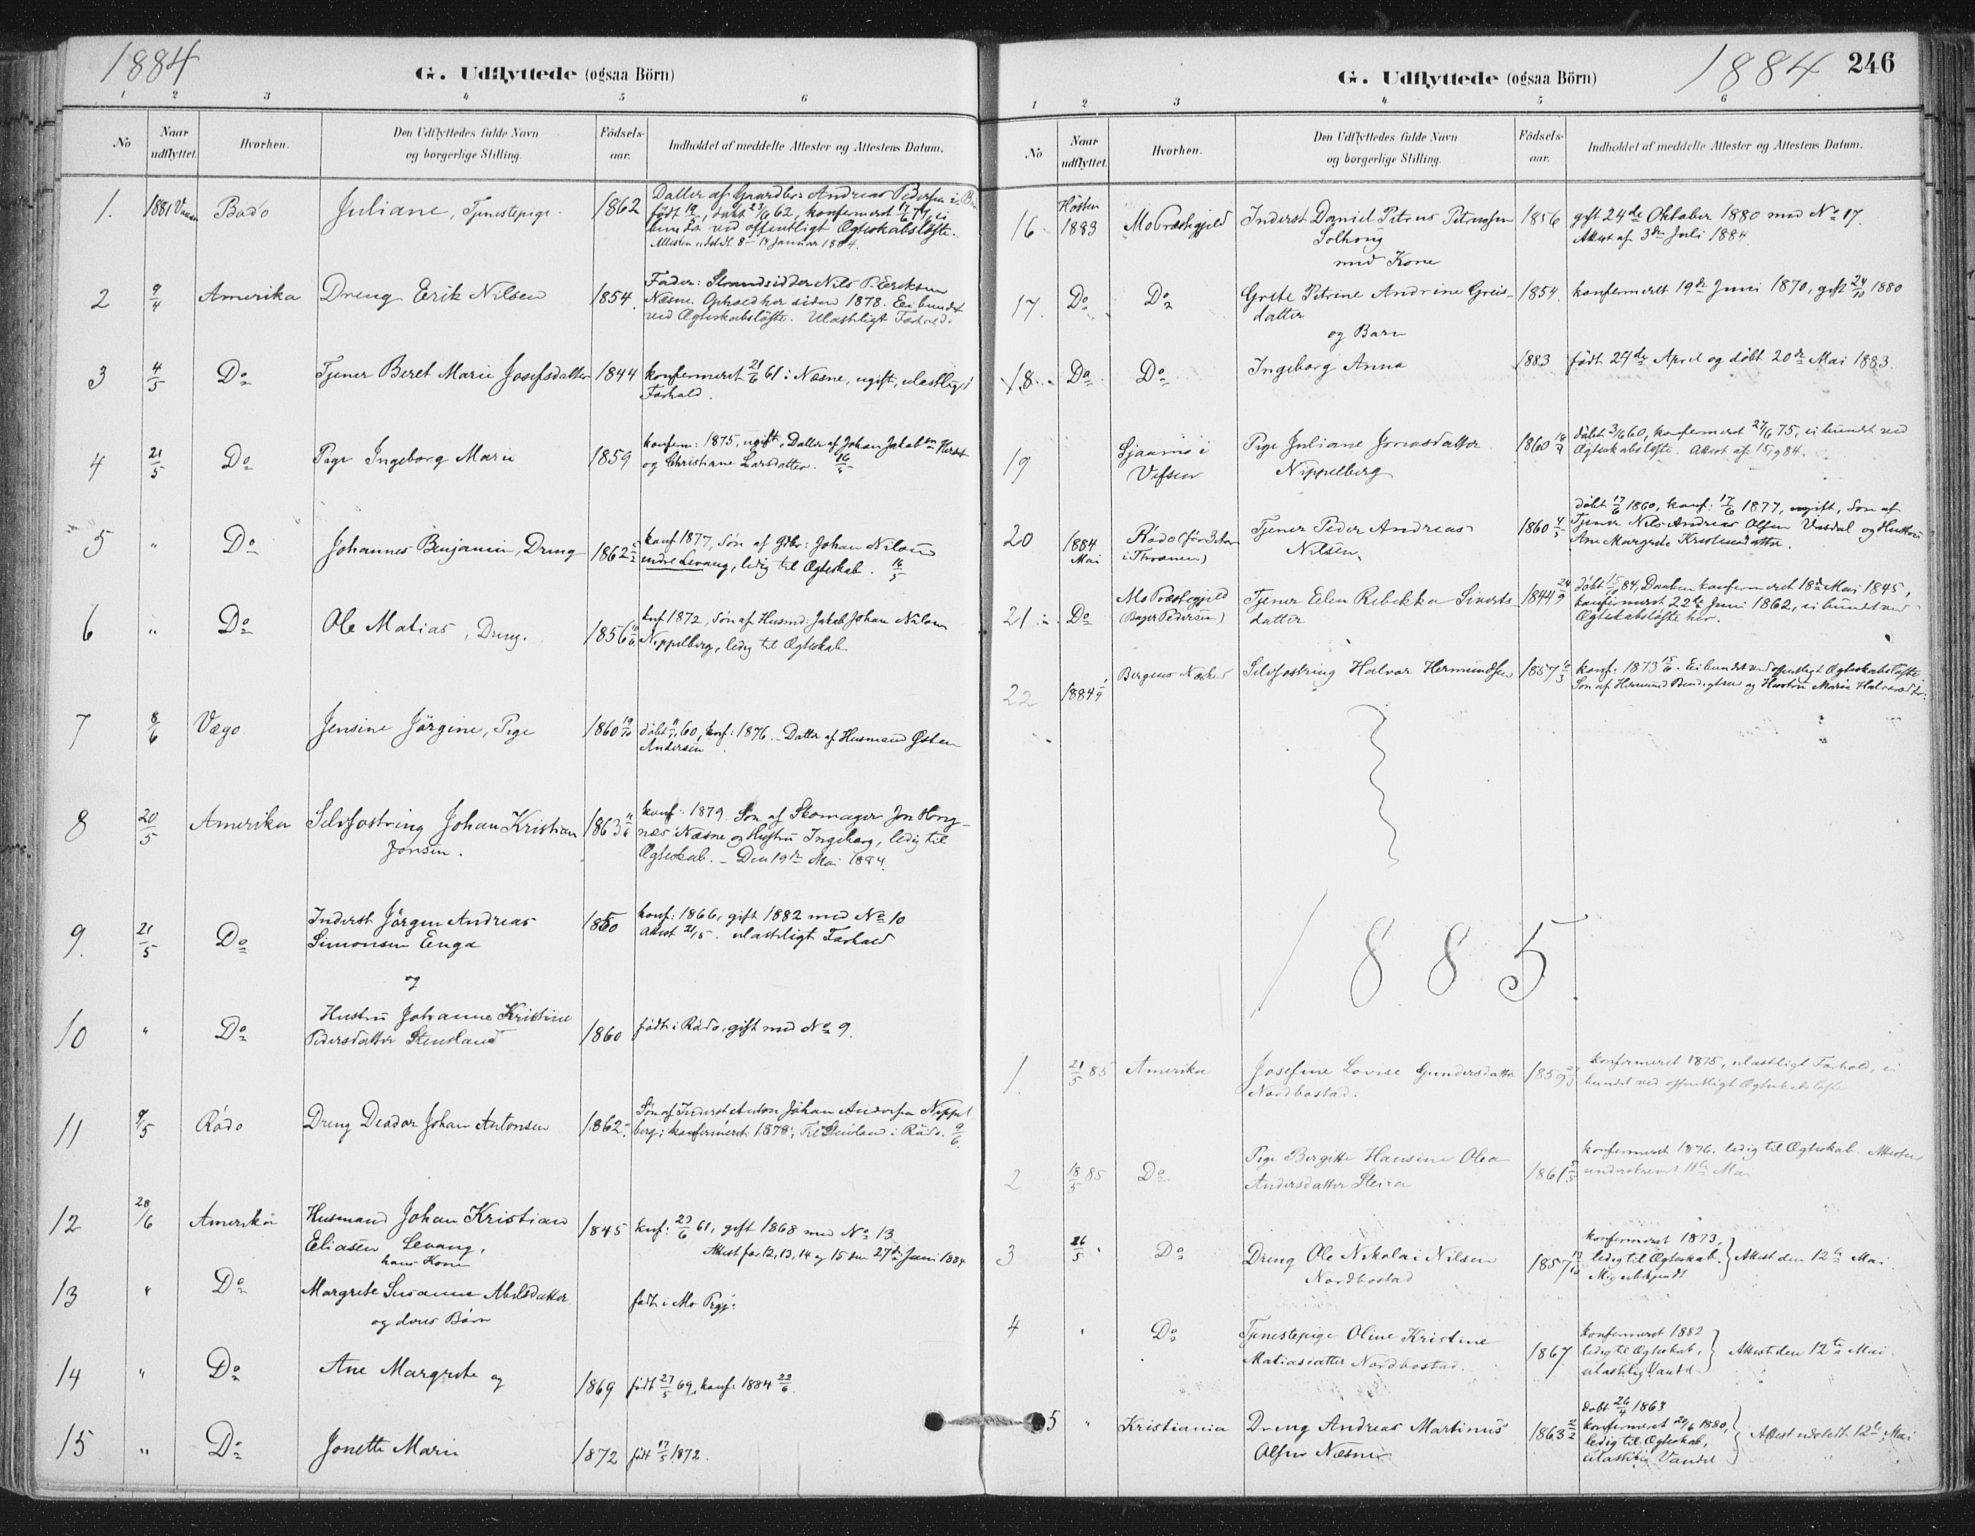 1884
G. Udflyttede (ogsaa Börn)
1 2 3 4 5 6
No
Naar udflyttet.
Hvorhen.
Den Udflyttedes fulde Navn og borgerlige Stilling.
Födsels-aar.
Indholdet af meddelte Attester og Attestens Datum.
1. 1881 Bodo Juliane, Tjenestepige. 1862 Datter af Gaardbr: Andreas Pedersen
født, døbt 62, konfirmeret
ved offentligt Ægteskabsløfte.
Januar 1884.
2 9/4 Amerika Dreng Erik Nilsen 1854. Fader: Strandsidder Nils P. Eriksen
Næsne. Ophold her siden 1878. Ei bundet
ved Ægteskabsløfte. Ulastligt Forhold.
3 4/5 Do Tjener Beret Marie Josefsdatter 1844 konfirmeret 21/6 61 i Næsne, ugift, ulastligt
Forhold.
4 21/5 Do Pige Ingeborg Marie 1859 konfirm: 1875, ugift, Datter af Johan Jakob
og Christiane Larsdatter. 16/5
5 " Do Johannes Benjamin, Dreng 1862 konf 1877, Søn af Gdbr: Johan Nilsen
indre Levang, ledig til Ægteskab. 16/5
6 " Do Ole Matias, Dreng. 1856 konf 1872, Søn af Husmd: Jakob Johan Nilsen
Nippelberg, ledig til Ægteskab
7 8/6 Vægo Jensine Jörgine, Pige 1860 19/10 døbt 60, konf: 1876. Datter af Husmand Østen
Andersen.
8 20/5 Amerika Selvfostring Johan Kristian
Jonsen. 1863 konf. 1879. Søn af Skomager Jon
Næsne og Hustru Ingeborg, ledig til
Ægteskab. – Den 19de Mai 1884.
9. 21/5 Do Inderst Jörgen Andreas
Simonsen Enga 1850 konf: 1866, gift 1882 med No 10
Attest 21/5. ulastligt Forhold
og
10 " Do Hustru Johanne Kristine
Pedersdatter Stensland 1860 født i Rödo, gift med No 9.
11 9/5 Rödo Dreng Johan Antonsen 1862 Søn af Inderst Anton Johan Nippel
berg; konfirmeret 1878, i Rödo. 9/6
12 28/6 Amerika Husmand Johan Kristian
Eliasen Levang,
hans Kone 1845 knf: 23/6 61, gift 1868 med No 13
Attest for 12, 13, 14 og 15 den 27de Juni 1884
13 " Do Margrete Susanne Abelsdatter
og deres Börn født i Mo Prgj:
14 " Do Ane Margrete og 1869 født 27/5 69, konf. 1884 22/6.
15 " Do Jonette Marie 1872 født 17/5 1872.
G. Udflyttede (ogsaa Börn)
1884
246
1 2 3 4 5 6
No
Naar udflyttet.
Hvorhen.
Den Udflyttedes fulde Navn og borgerlige Stilling.
Födsels-aar.
Indholdet af meddelte Attester og Attestens Datum.
16 Høsten
1883 Mo Præstegjeld Inderst Daniel Petrus Petersen
Solhoug
med Kone 1856 gift 24de Oktober 1880 med No 17.
Attest af 3die Juli 1884.
17. Do Do Grete Petrine Andrine Greis-
datter
og Barn 1854. konfirmeret 19de Juni 1870, gift 24/10 1880
18 Do Do Ingeborg Anna 1883 født 29de April og døbt 20de Mai 1883.
19 Sjaamo i
Vefsen Pige Juliane Jonasdatter
Nippelberg 1860 døbt 3/6 60, konfirmeret 27/6 75, ei bundet ved
Ægteskabsløfte. Attest af
20 1884
Mai Rödo Tjener Peder Andreas
Nilsen. 1860 4/5 døbt 17/6 1860, konf: 17/6 1877, ugift, Søn af
Tjener Nils Andreas Olsen og Hustru
Ane Margrete
21 Do Mo Præstegjeld
(Bager Pedersen) Tjener Elen Rebekka Siverts
datter 1844 døbt konfirmeret 18de Mai 1845,
konfirmeret 22de Juni 1862, ei bundet ved
Ægteskabsløfte her.
22 1884 Bergens Selvfostring Halvor Hermundsen 1857 konf: 1873 15/6. Ei bundet ved offentligt Ægteskabsløfte.
Søn af Hermund og Hustru Maria
1885.
1. 21/5 85 Amerika Josefine Lovise Gundersdatter
Nordbostad. 1859 konfirmeret 1875, ulastligt Forhold, ei
bundet ved offentligt Ægteskabsløfte
2 18/5 85 Do Pige Birgitte Hansine Olea
Andersdatter Sleira 1861 konfirmeret 1876. ledig til Ægteskab. Attesten
underskrevet Mai
3 26/5 Do Dreng Ole Nikolai Nilsen
Nordbostad 1857 konfirmeret 1873,
ledig til Ægteskab. Attest den 12te Mai.
4 " Do Tjenestepige Oline Kristine
Matiasdatter Nordbostad. 1867 konfirmeret 1882
ledig til Ægteskab, Attest den 12te Mai.
ulastlig Vandel
5 " Kristiania Dreng Andreas Martinus
Olsen Næsne 1863 døbt 26/4 1863
konfirmeret 20/6 1880,
ledig til Ægteskab, Attest udstedt 12te Mai
ulastlig Vandel